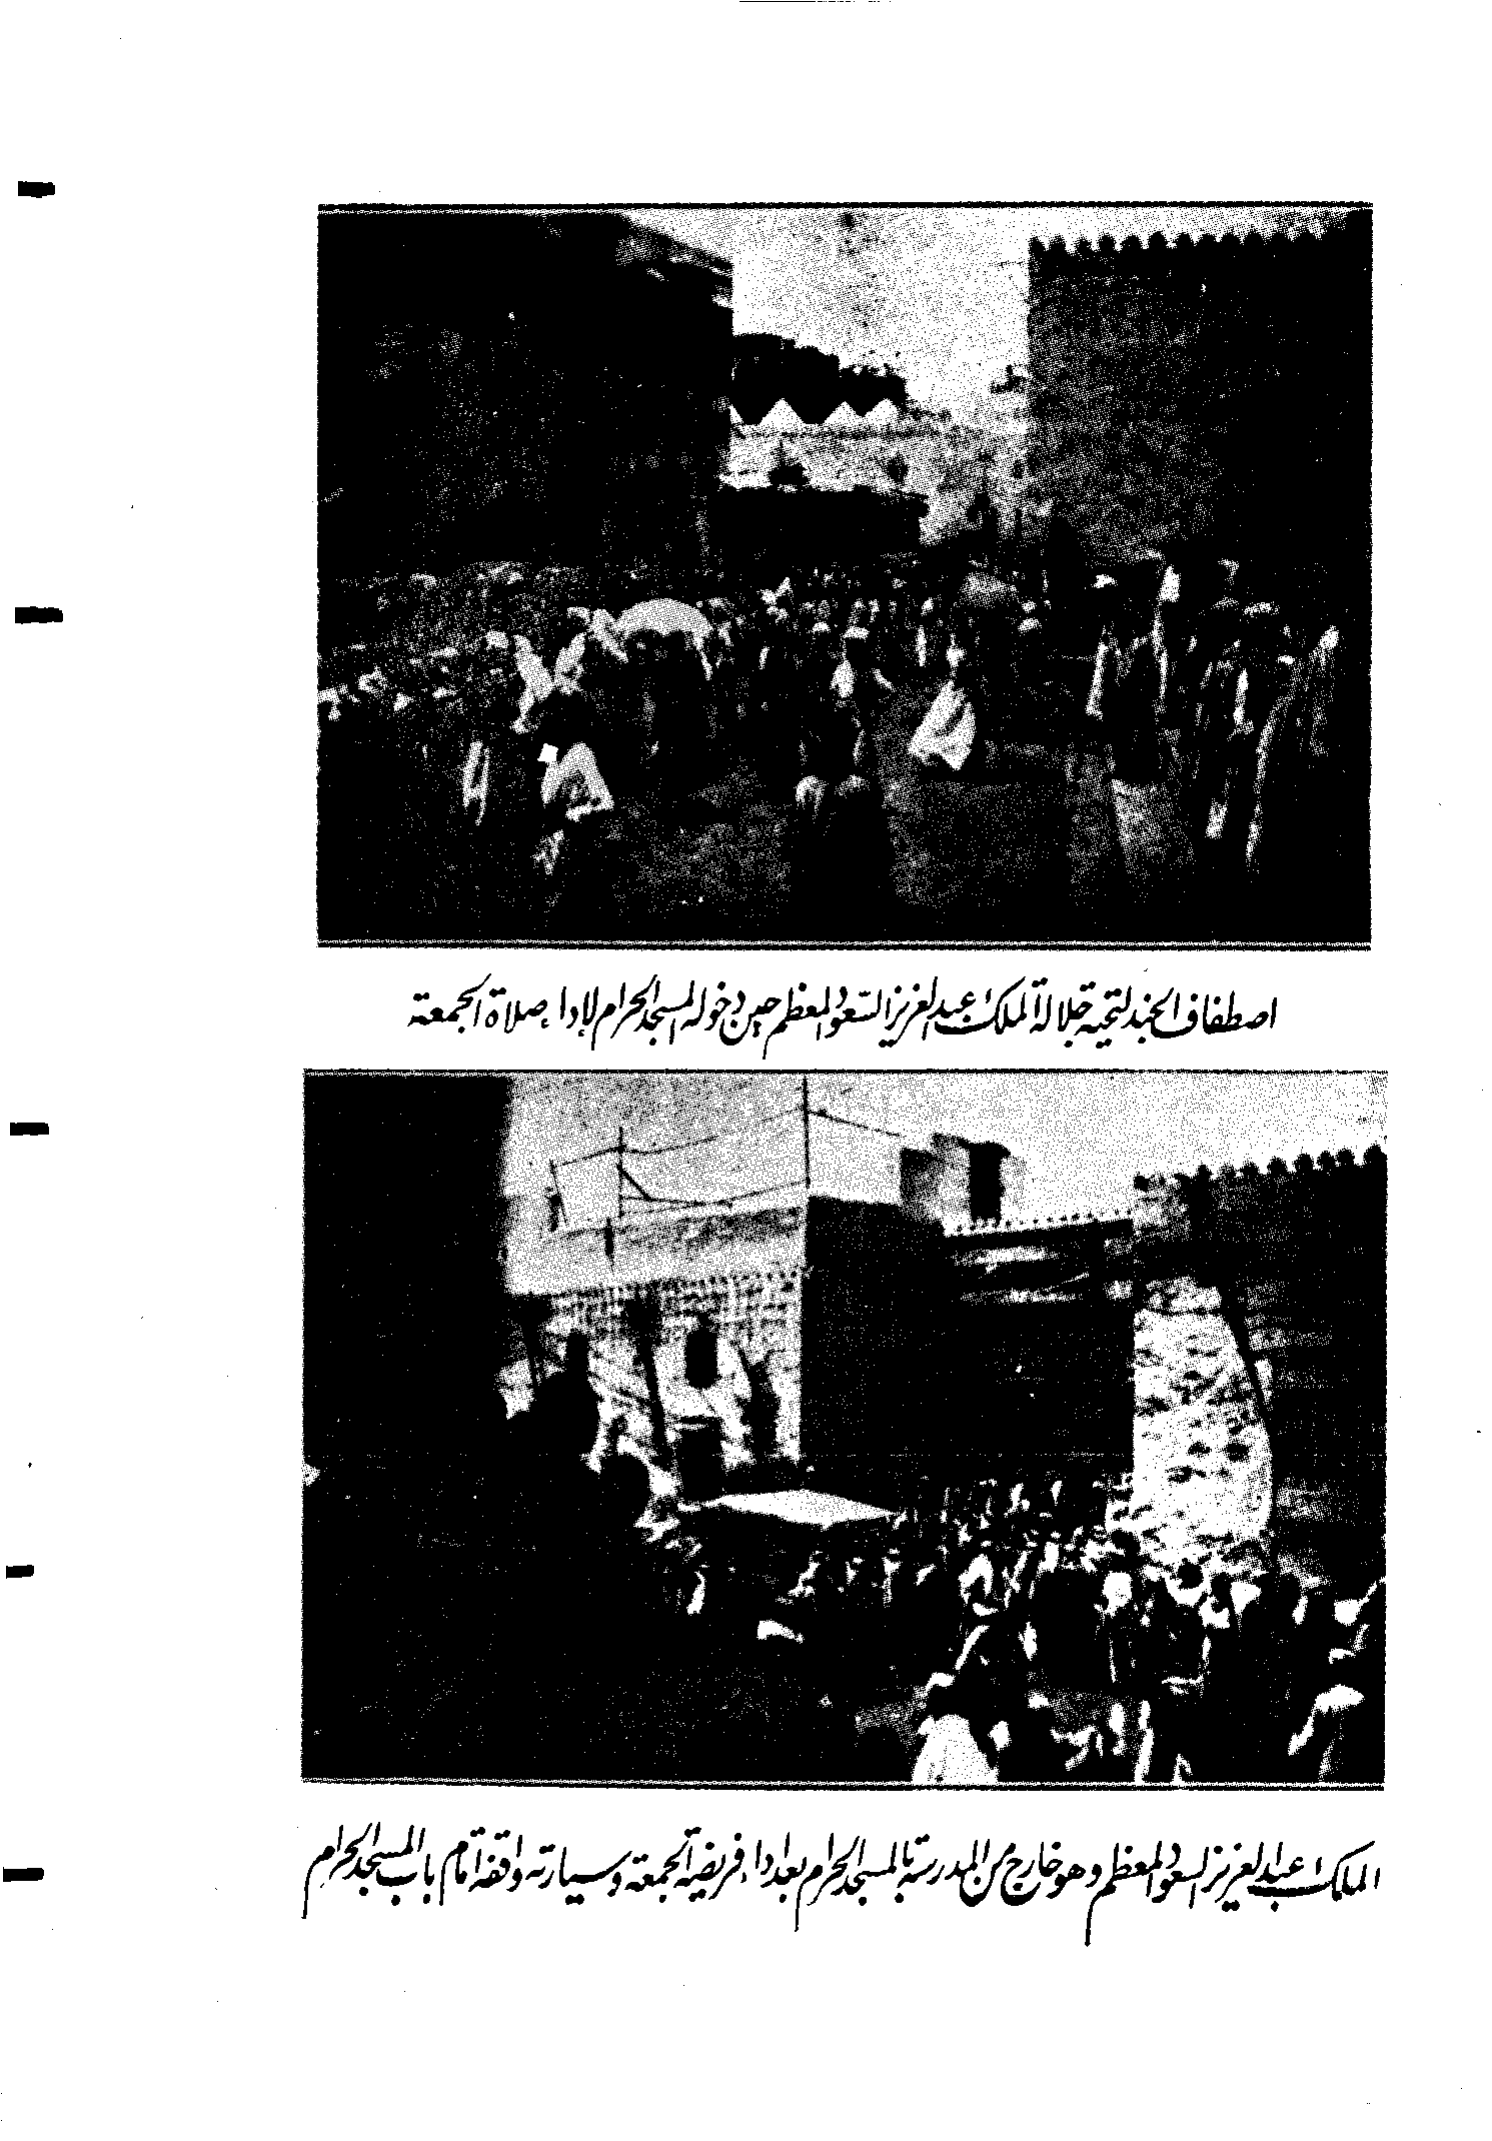 اصطفاف الجند لتحية جلالة الملك عبد العزيز السعود المعظم حين دخوله المسجد الحرام لإداء صلاة الجمعة
الملك عبد العزيز السعود المعظم وهو خارج من المدرسة بالمسجد الحرام بعد اداء فريضة الجمعة وسيارته واقفة امام باب المسجد الحرام